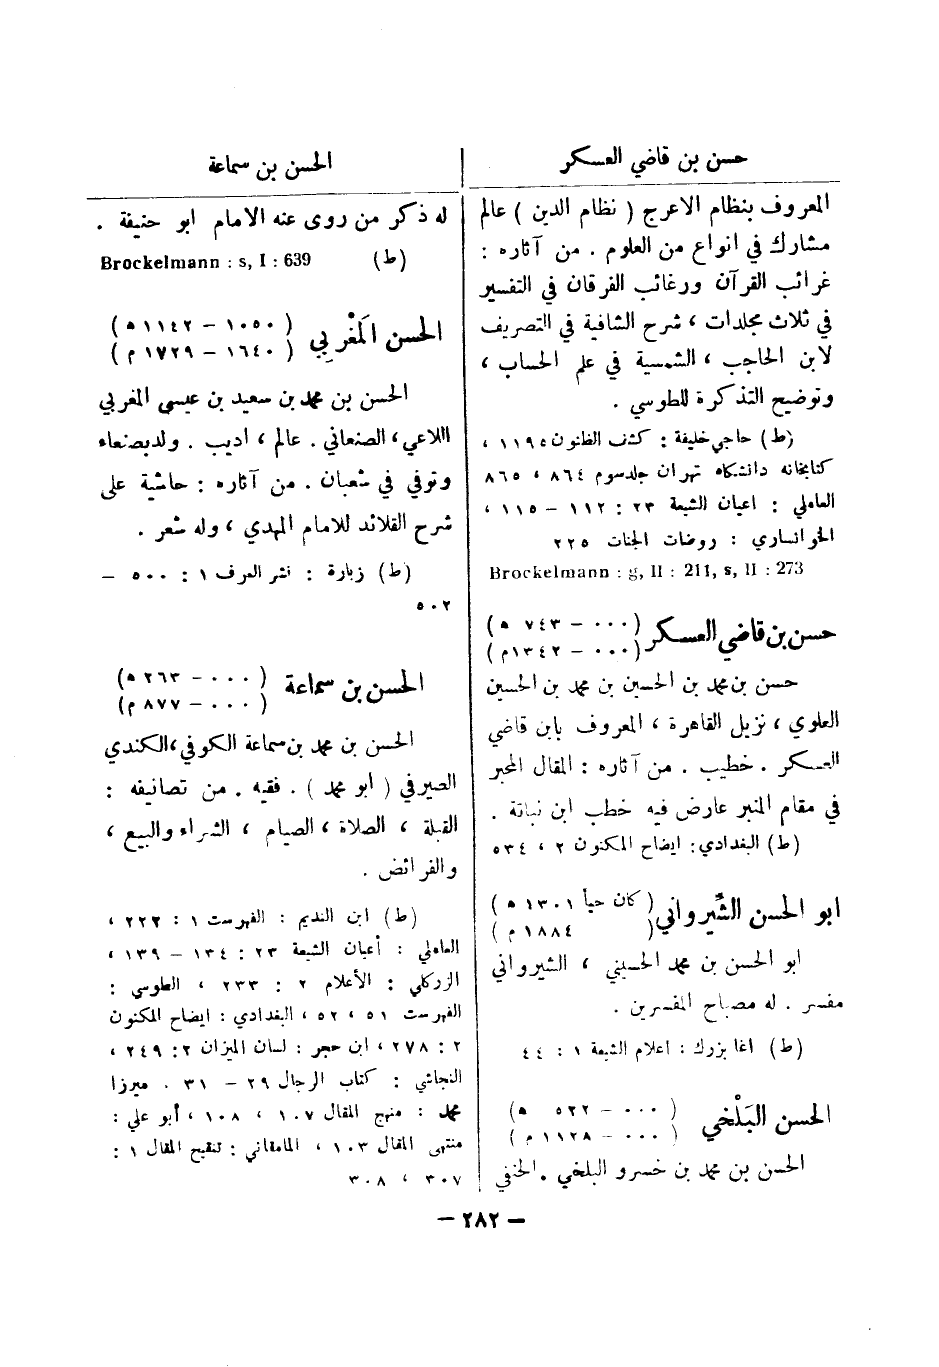 حسن بن قاضي العسكر
المعروف بنظام الاعرج ( نظام الدين ) عالم
مشارك في انواع من العلوم . من آثاره :
غرائب القرآن ورغائب الفرقان في التفسير
في ثلاث مجلدات ، شرح الشافية في التصريف
لابن الحاجب ، الشمسية في علم الحساب ،
وتوضيح التذكرة للطوسي .
(ط) حاجي خليفة : كشف الظنون ١١٩٥ ،
كتابخانه دانشكاه تهران جلد سوم ٨٦٤ ، ٨٦٥
العاملي : اعيان الشيعة ٢٣ : ١١٢ – ١١٥ ،
الخوانساري : روضات الجنات ٢٢٥
Brockelmann : g, II : 211, s, II : 273
حسن بن قاضي العسكر (٠٠٠ – ٧٤٣ هـ)
(٠٠٠ – ١٣٤٢ م)
حسن بن محمد بن الحسين بن محمد بن الحسين
العلوي ، نزيل القاهرة ، المعروف بابن قاضي
العسكر . خطيب . من آثاره : المقال المحبر
في مقام المنبر عارض فيه خطب ابن نباتة .
(ط) البغدادي : ايضاح المكنون ٢ ، ٥٣٤
ابو الحسن الشّيرواني ( كان حياً ١٣٠١ هـ )
( ١٨٨٤ م )
ابو الحسن بن محمد الحسيني ، الشيرواني
مفسر . له مصباح المفسرين .
(ط) اغا بزرك : اعلام الشيعة ١ : ٤٤
الحسن البَلْخي ( ٠٠٠ – ٥٢٢ هـ)
( ٠٠٠ – ١١٢٨ م )
الحسن بن محمد بن خسرو البلخي . الحنفي
الحسن بن سماعة
له ذكر من روى عنه الامام ابو حنيفة .
(ط) Brockelmann : s, I : 639
الحسن المَغْربِي ( ١٠٥٠ – ١١٤٢ هـ )
( ١٦٤٠ – ١٧٢٩ م )
الحسن بن محمد بن سعيد بن عيسى المغربي
اللاعي ، الصنعاني . عالم ، اديب . ولد بصنعاء
وتوفي في شعبان . من آثاره : حاشية على
شرح القلائد للامام المهدي ، وله شعر .
(ط) زبارة : نشر العرف ١ : ٥٠٠ –
٥٠٢
الحسن بن سماعة ( ٠٠٠ – ٢٦٣ هـ)
( ٠٠٠ – ٨٧٧ م)
الحسن بن محمد بن سماعة الكوفي ، الكندي
الصيرفي ( أبو محمد ) . فقيه . من تصانيفه :
القبلة ، الصلاة ، الصيام ، الشراء والبيع ،
والفرائض .
(ط) ابن النديم : الفهرست ١ : ٢٢٢ ،
العاملي : أعيان الشيعة ٢٣ : ١٣٤ – ١٣٩ ،
الزركلي : الأعلام ٢ : ٢٣٣ ، الطوسي :
الفهرست ٥١ ، ٥٢ ، البغدادي : ايضاح المكنون
٢ : ٢٧٨ ، ابن حجر : لسان الميزان ٢ : ٢٤٩ ،
النجاشي : كتاب الرجال ٢٩ – ٣١ . ميرزا
محمد : منهج المقال ١٠٧ ، ١٠٨ ، أبو علي :
منتهى المقال ١٠٣ ، المامقاني : تنقيح المقال ١ :
٣٠٧ ، ٣٠٨
– ٢٨٢ –